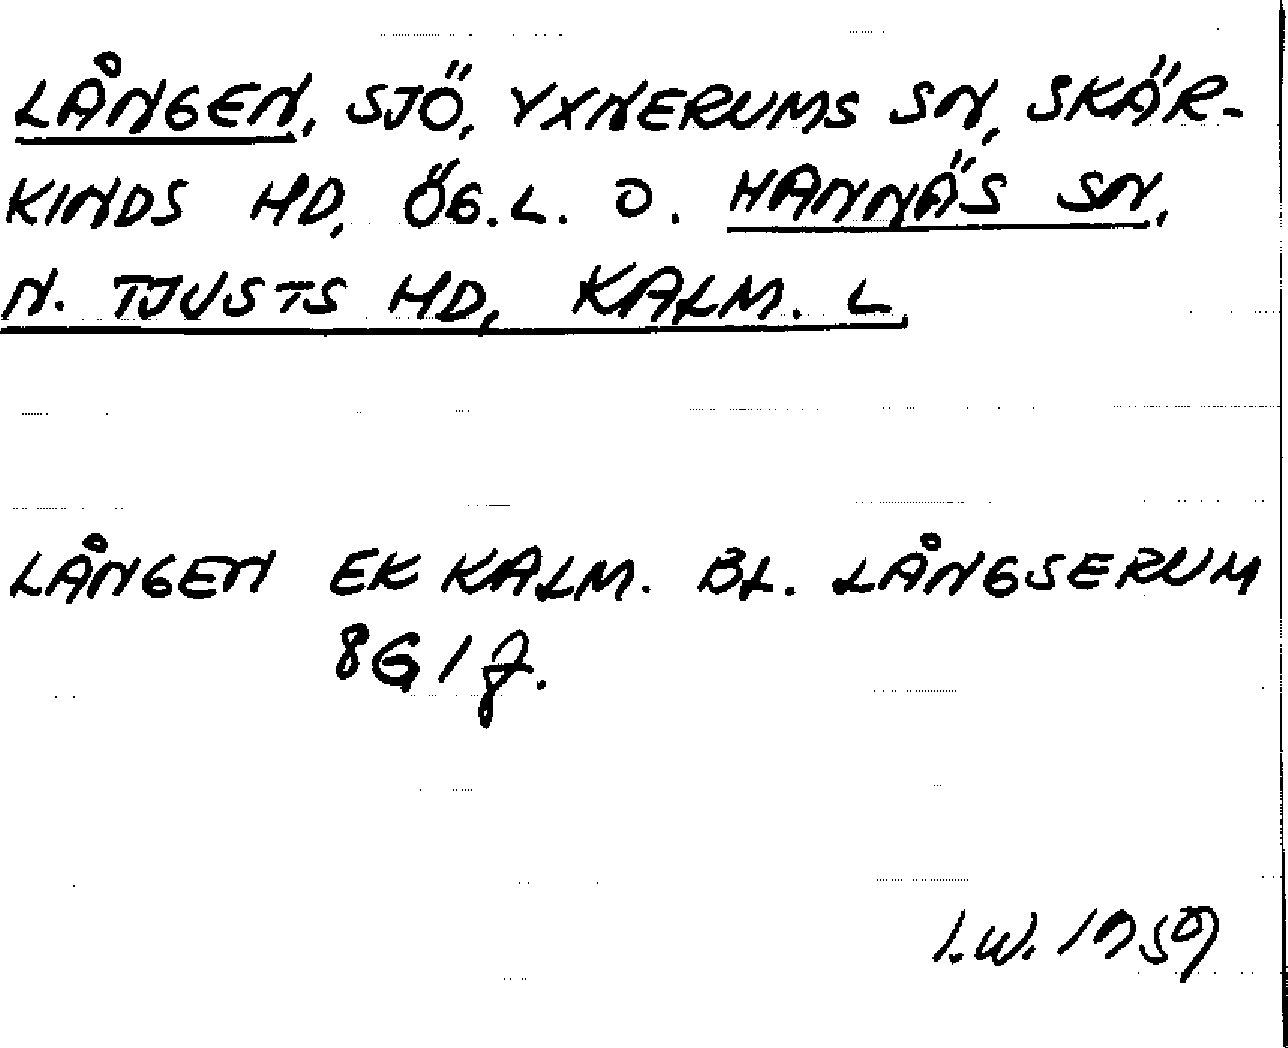 LÅNGEN, SJÖ, YXNERUMS SN, SKÄR-
KINDS HD, ÖG.L. O. HANNÄS SN,
N. TJUSTS HD, KALM. L.
LÅNGEN EK KALM. BL. LÅNGSERUM
8G1f.
I.W. 1959